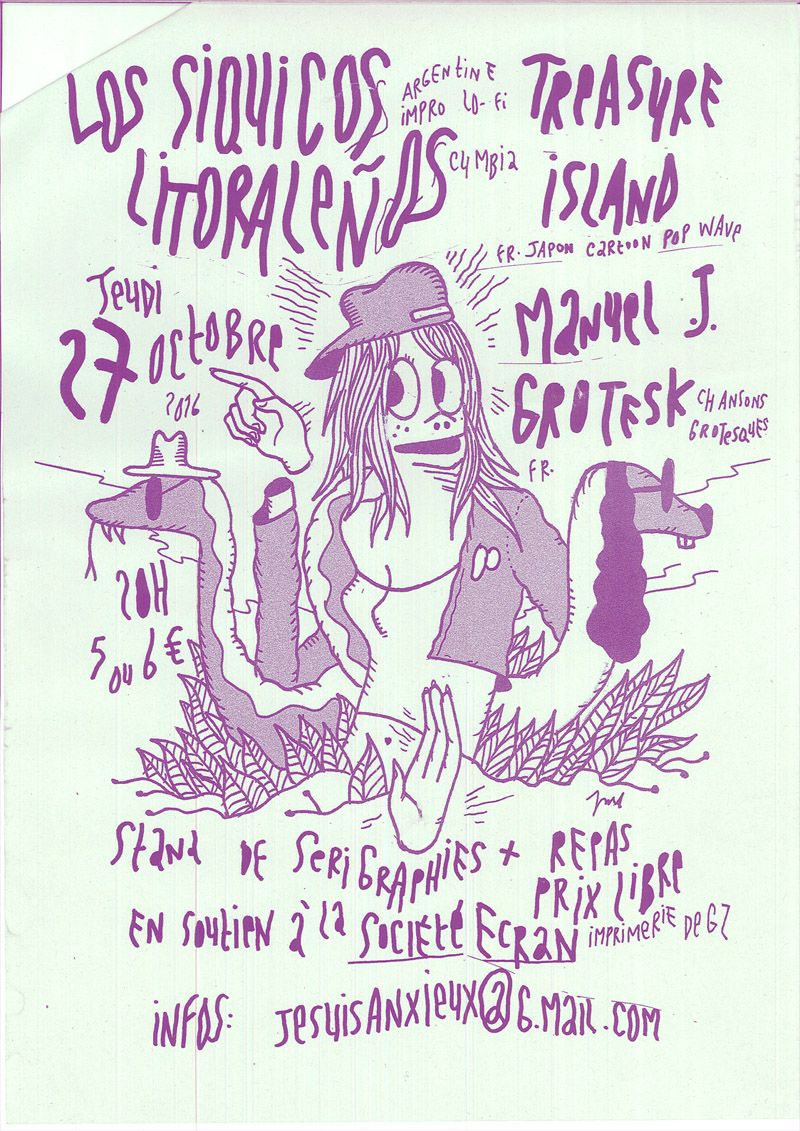 LOS SiQUiCOS
LiTORALEÑOS
ARGENtiNE
iMPRO LO-Fi
CUMBia
TREASURE
iSLAND
FR. JAPON CARtOON POP WAVE
JEUDi
27 OCtOBRE
2016
MaNUEL .J.
GROTESK
CHANSONS
GROTESQUES
FR.
20H
5 OU 6 €
StaNd DE SERiGRAPHiES + REPAS
PRiX LiBRE
EN SOUtiEN à La SOCiÉtÉ ECRAN
iMPRiMERiE DE G7
iNFOS: JESUiSANXiEUX@G.MaiL.COM